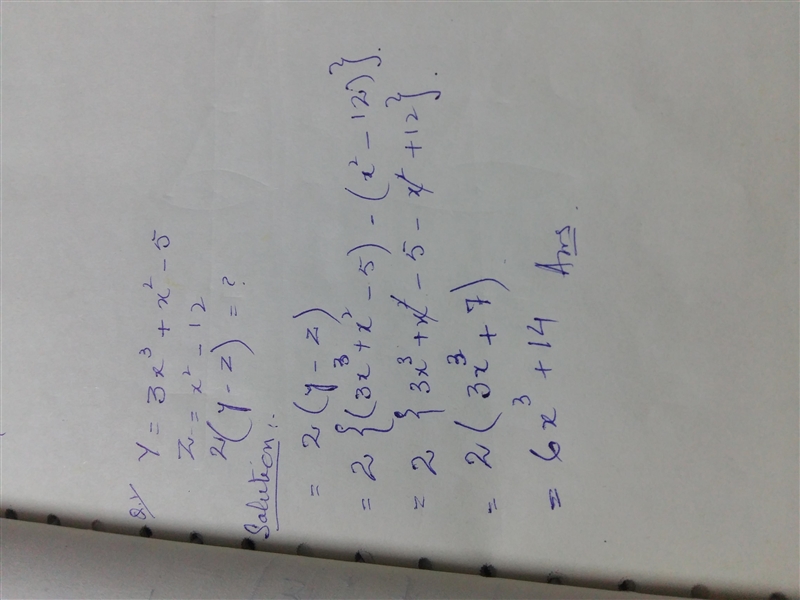 Q.1/ y = 3x³ + x² - 5
z = x² - 12
2(y - z) = ?
Solution:-
= 2(y - z)
= 2{(3x³ + x² - 5) - (x² - 12)}.
= 2{3x³ + x² - 5 - x² + 12}.
= 2(3x³ + 7)
= 6x³ + 14 Ans.